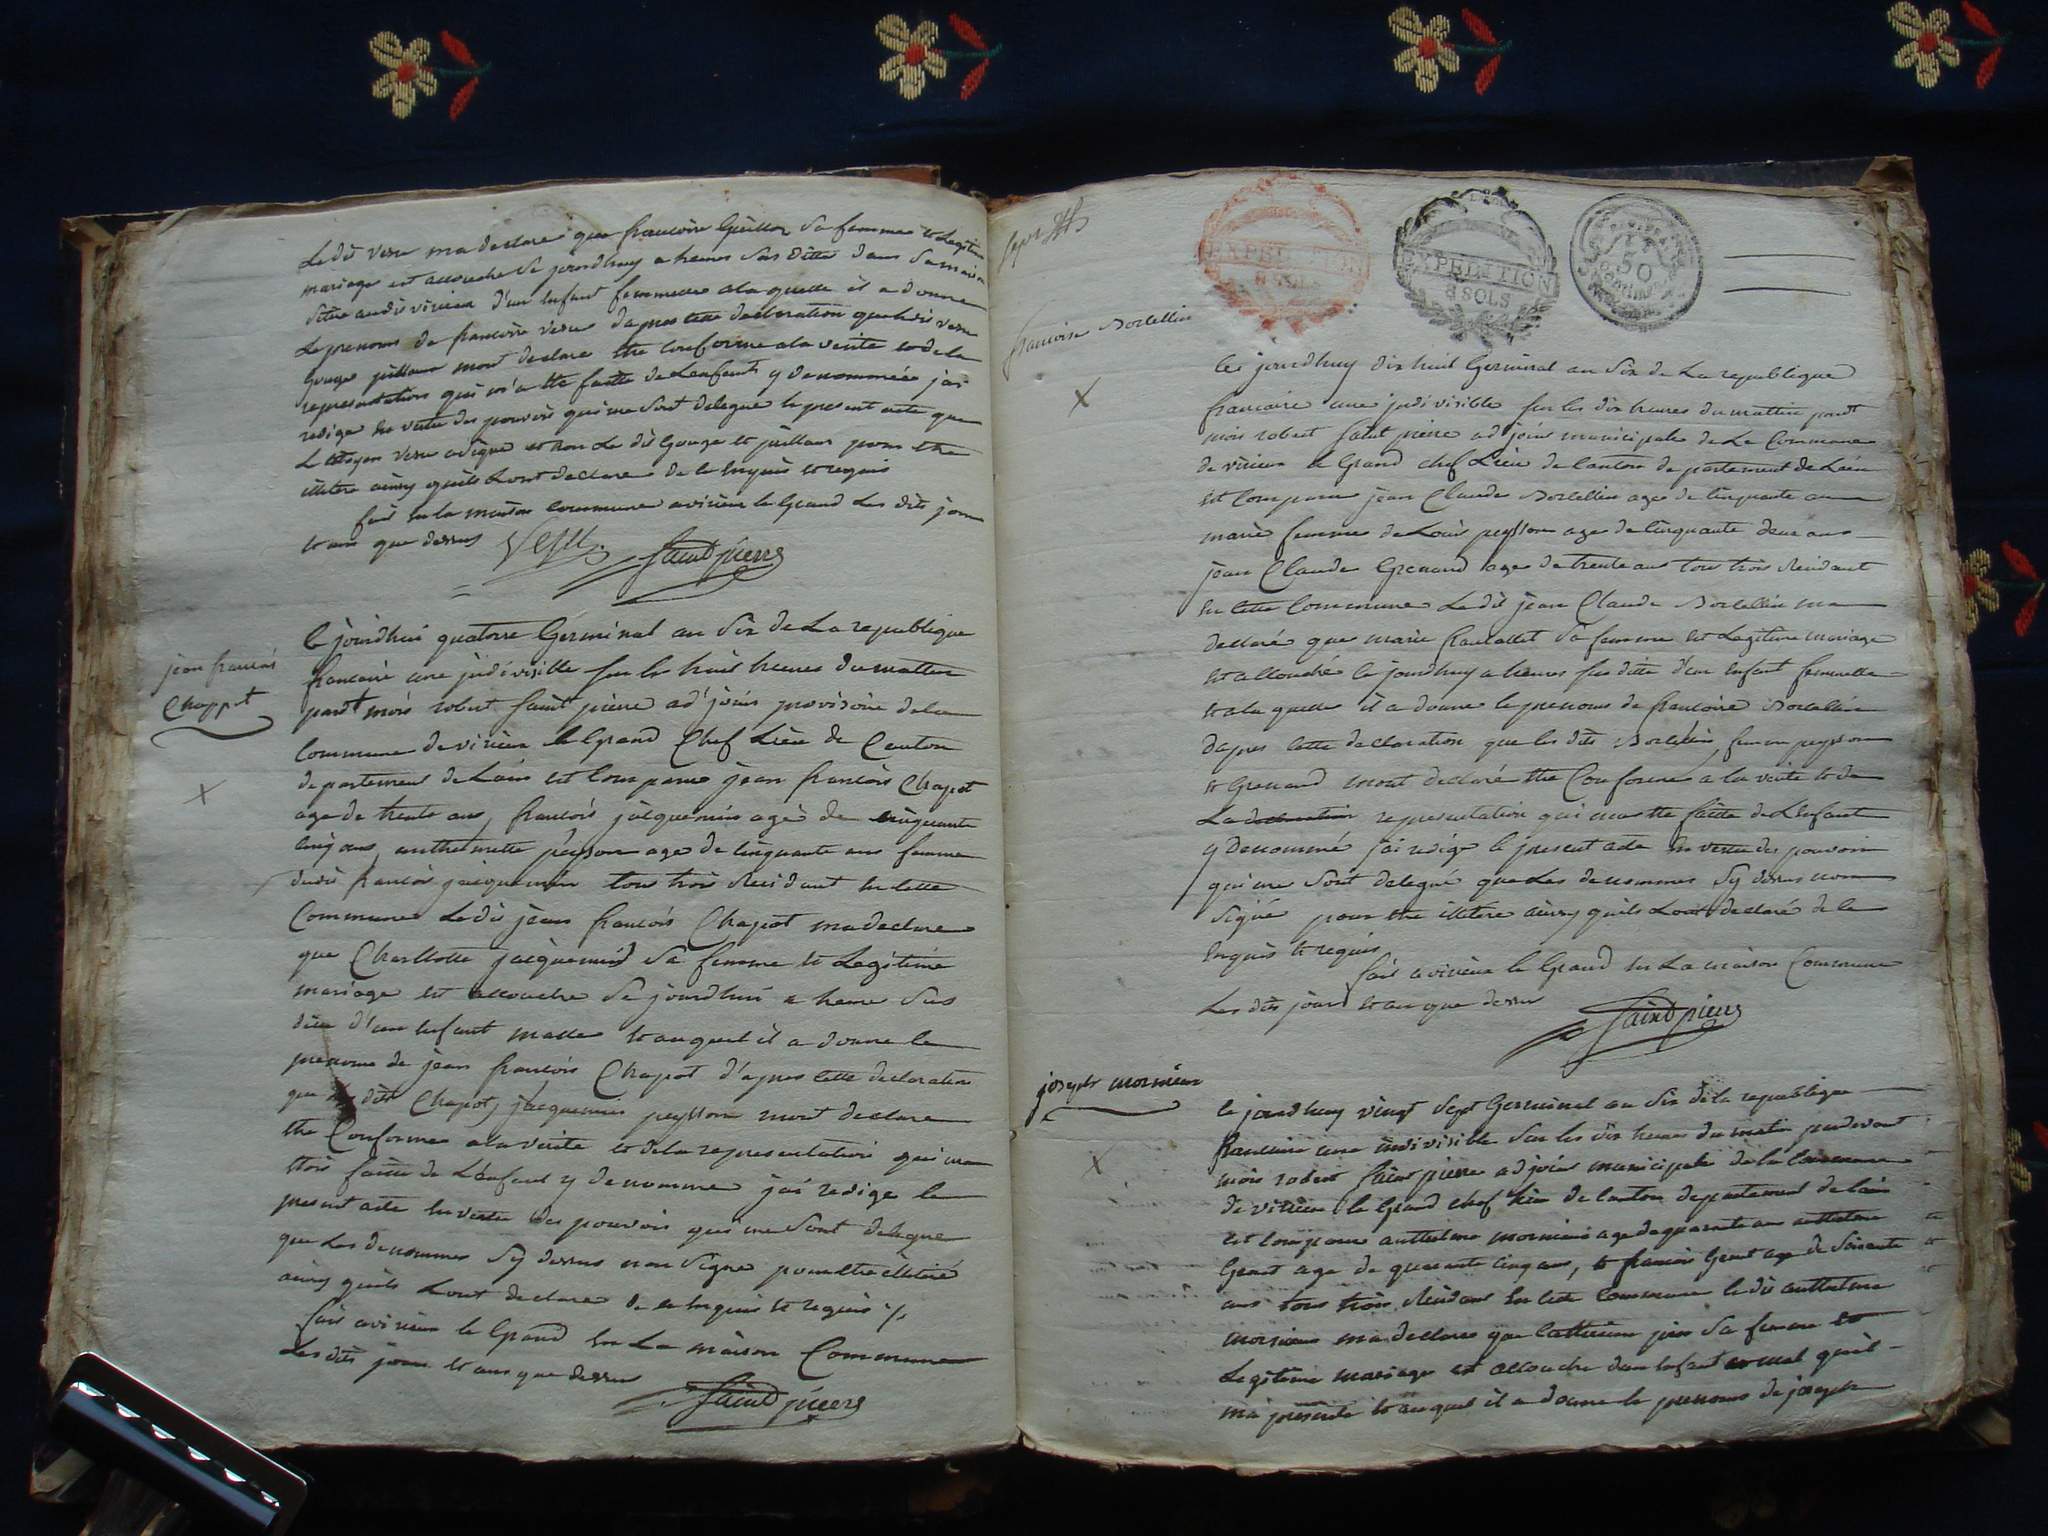 Ledit vesu ma declare que francoise Guillon Sa femme et Legitime
mariage est accouche Se jourdhuy a heures Sus ditte dans Sa maison
Situe audit virieu d'un Enfant femmelle ala quelle il a donne
Le prenoms de francoise vesu dapres cette declaration que ledit vesu
Gouge juillan mont declare Etre Conforme ala verite et de la
representation qui m'a Ete faitte de Lenfant y denommée jai
redige En vertu des pouvoirs qui me Sont delegue le present acte que
Le Citoyen vesu a Signe et non Le dit Gouge et juillan pour Etre
illitere ainsy quils Lont declare de ce Enquis et requis
fait en la maison commune a virieu le Grand Les dits jour
et an que dessus Vesu
Saint pierre
Ce jourdhui quatorse Germinal an Six de La republique
jean francois
Chappot
francaise une jndivisible Sur les huit heures du mattin
pardt mois robert Saint pierre adjoint provisoire de la
Commune de virieu le Grand Chef Lieu de Canton
departement de Lain est Comparu jean francois Chapot
age de trente ans, francois jacquemin agé de cinquante
cinq ans, antheimette peysson age de cinquante ans femme
dudit francois jacquemin tous trois Residant En cette
Commune Le dit jean francois Chapot ma declare
que Charllotte jacquemin Sa femme et Legitime
mariage est accouche Se jourdhui a heure Sus
ditte d'un Enfant malle et auquel il a donne le
prenoms de jean francois Chapot d'apres cette declaration
que les dits Chapot, jacquemin peysson mont declare
Etre Conforme a la verite et de la representation qui ma
Ette faitte de L'enfant y denomme jai redige le
present acte En vertu des pouvoirs qui me Sont delegue
que Les denommes Sy dessus non Signe pour Etre illitere
ainsy quils Lont declare de ce Enquis et requis ./.
fait a virieu le Grand En La maison Commune
Les dits jour et ans que dessus
Saint pierre
EXPEDITION
8 SOLS
EXPEDITION
8 SOLS
50
francoise Borcellin
Ce jourdhuy dix huit Germinal an Six de La republique
francaise une jndivisible Sur les dix heures du mattin pardt
mois robert Saint pierre adjoint municipale de La Commune
de virieu le Grand chef Lieu de Canton departement de Lain
est Comparu jean Claude Borcellin age de cinquante ans
marie femme de Louis peysson age de cinquante deux ans
jean Claude Grenand age de trente ans tous trois Residant
En cette Commune Le dit jean Claude Borcellin ma
declaré que marie Sa femme et Legitime mariage
est accouché ce jourdhuy a heures Sus ditte d'un Enfant femmelle
et ala quelle il a donne le prenoms de francoise Borcellin
dapres cette declaration que les dits Borcellin, femme peysson
et Grenand mont declaré Etre Conforme a la verite et de
La declaration representation qui ma Ette faitte de L'Enfant
y denommé j'ai redige le present acte En vertu des pouvoir
qui me Sont delegué que Les denommes Sy dessus non
Signé pour Etre illitere ainsy quils Lont declaré de ce
Enquis et requis
fait a virieu le Grand En La maison Commune
Les dits jour et an que dessus
Saint pierre
joseph mornieu
Ce jourdhuy vingt Sept Germinal an Six de la republique
francaise une indivisible Sur les dix heures du matin pardevant
mois robert Saint pierre adjoint municipale de la Commune
de virieu le Grand chef lieu de Canton departement de lain
est Comparu anthelme mornieu age de quarante ans anthelme
Genet age de quarante cinq ans, et francois Genet age de Soixante
ans tous trois Residant En cette Commune le dit anthelme
mornieu ma declare que Catherine Sa femme et
Legitime mariage est accouche dun Enfant mal quil
ma presente et auquel il a donne le prenoms de joseph